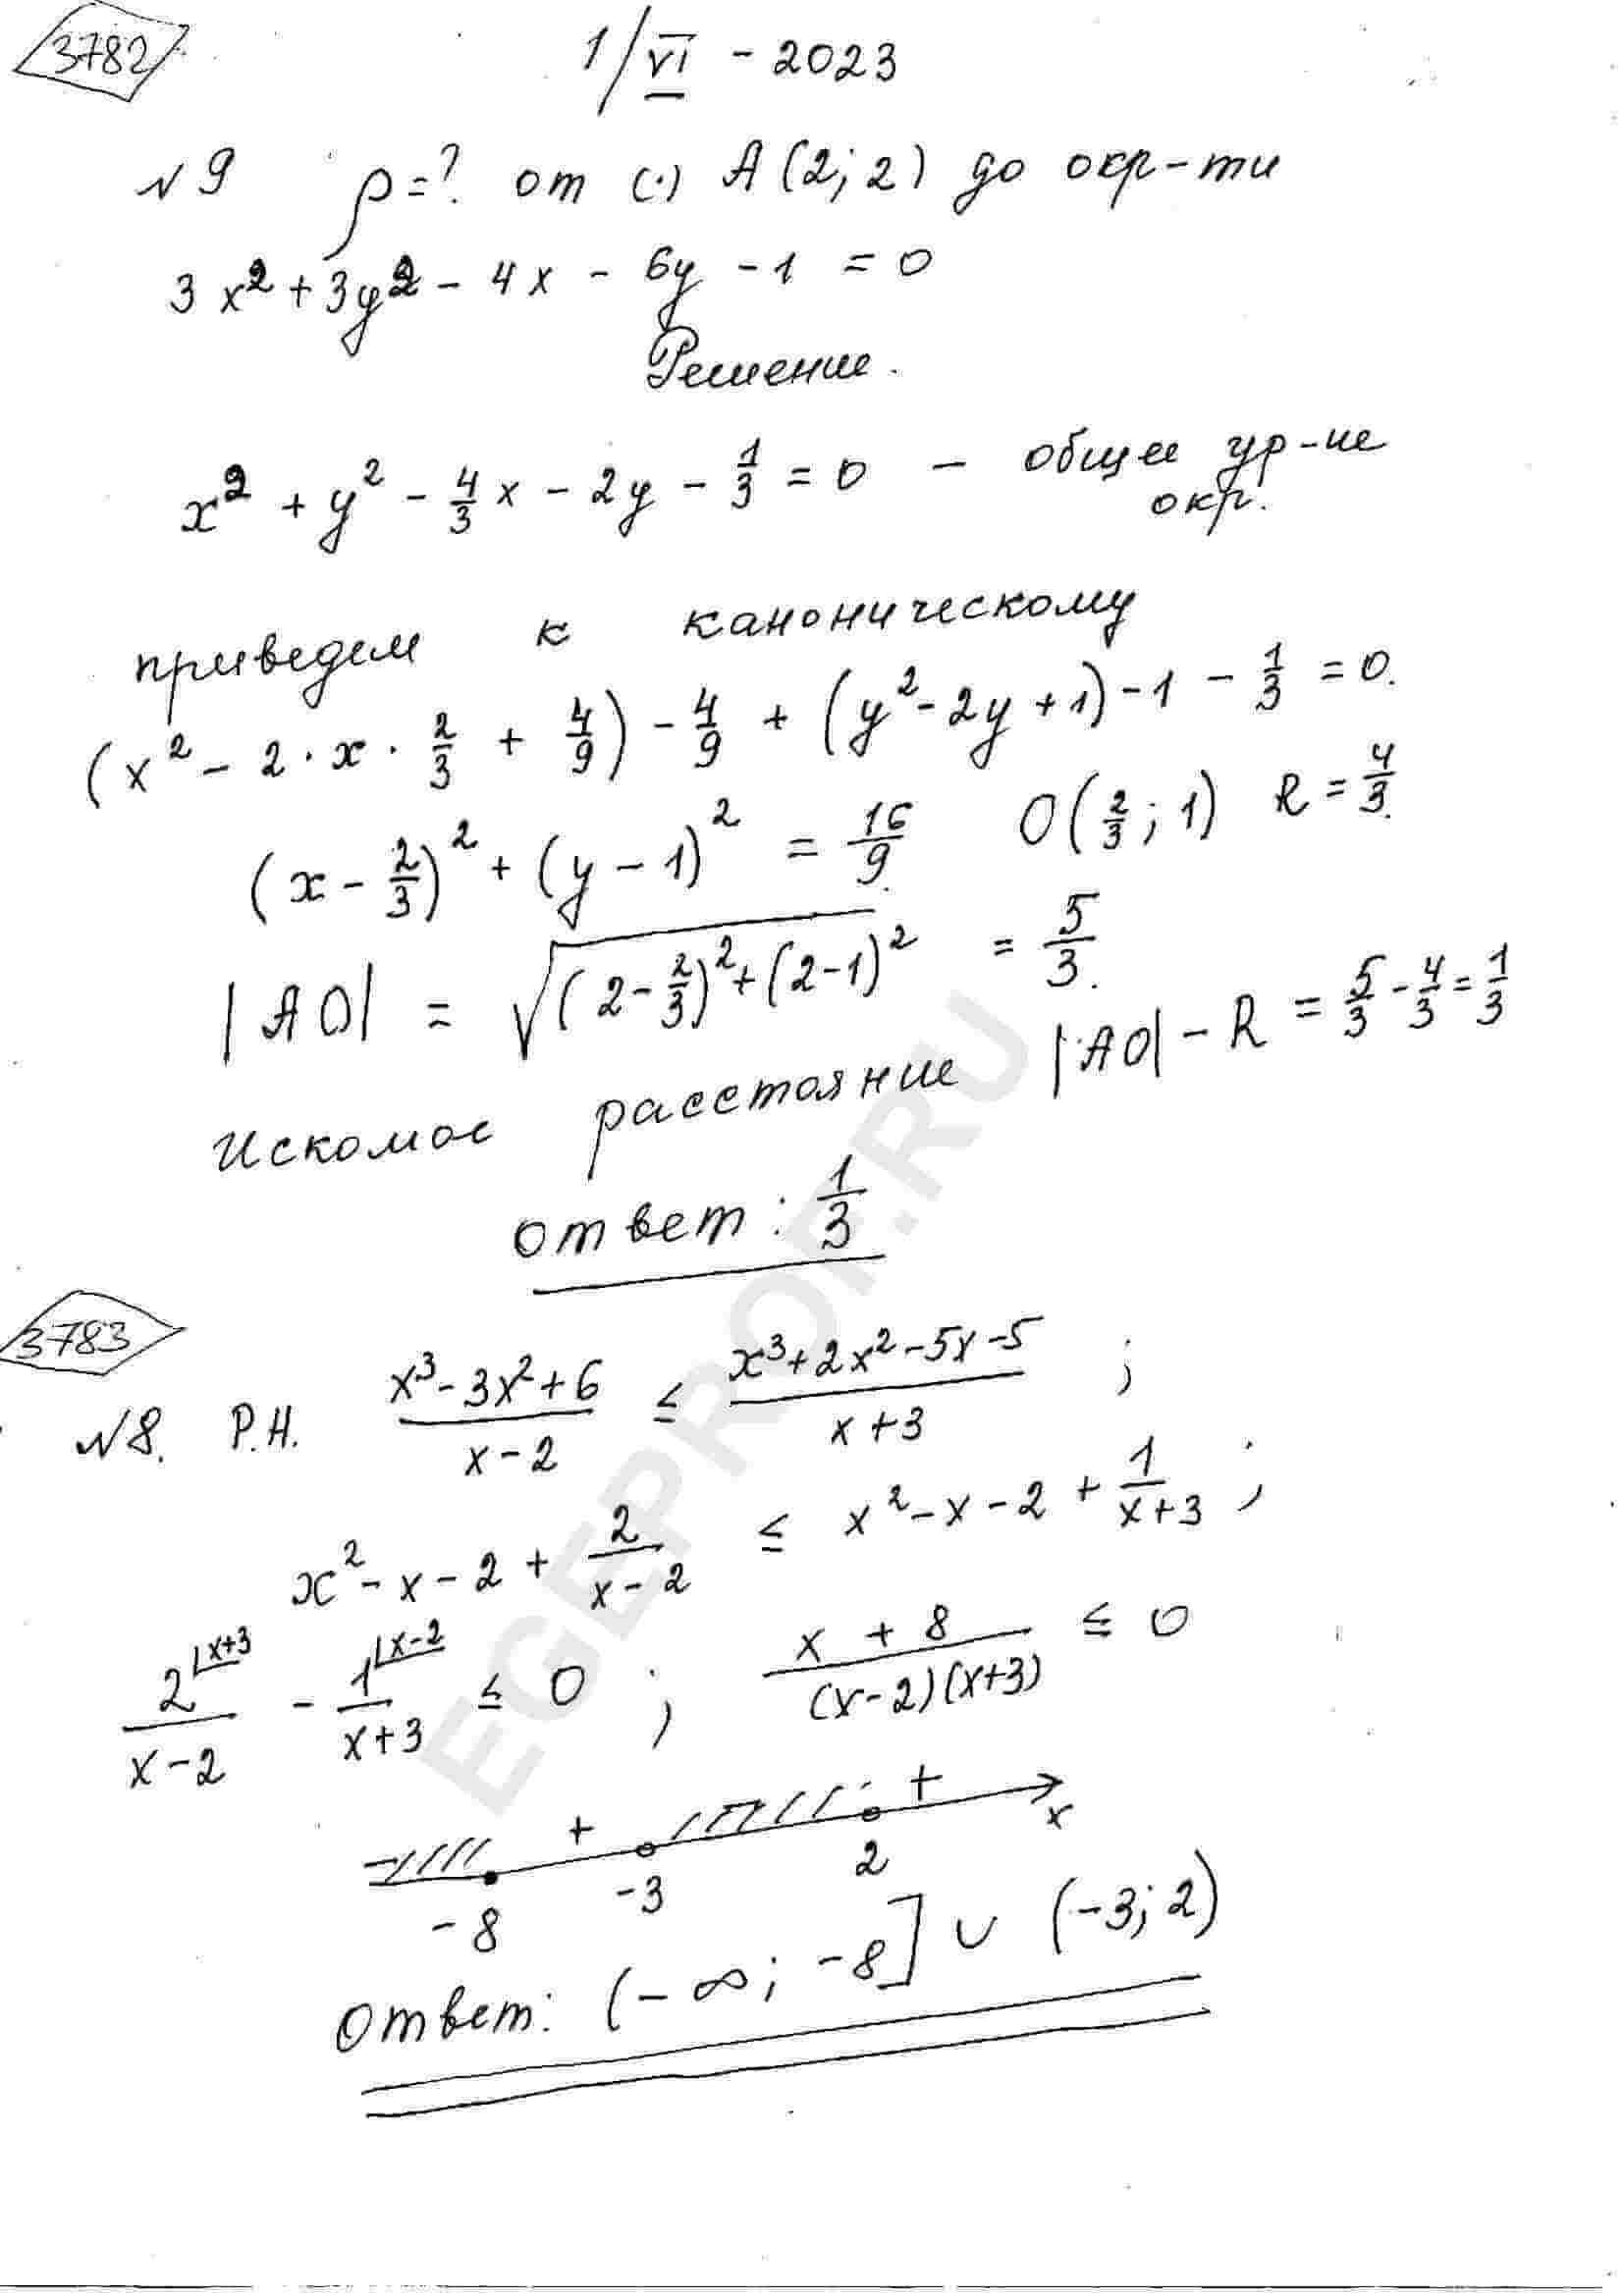 3782
1/VI - 2023
№ 9 ρ=? от (·) A(2; 2) до окр-ти
3x² + 3y² - 4x - 6y - 1 = 0
Решение.
x² + y² - 4/3 x - 2y - 1/3 = 0 - общее ур-ие
окр.
приведем к каноническому
(x² - 2·x·2/3 + 4/9) - 4/9 + (y² - 2y + 1) - 1 - 1/3 = 0.
(x - 2/3)² + (y - 1)² = 16/9. O(2/3; 1) R = 4/3.
|AO| = √((2 - 2/3)² + (2-1)²) = 5/3.
Искомое расстояние |AO| - R = 5/3 - 4/3 = 1/3
Ответ: 1/3
3783
№8. Р.Н. (x³ - 3x² + 6)/(x - 2) ≤ (x³ + 2x² - 5x - 5)/(x + 3) ;
x² - x - 2 + 2/(x - 2) ≤ x² - x - 2 + 1/(x + 3) ;
2⌊x+3/(x - 2) - 1⌊x-2/(x + 3) ≤ 0 ; (x + 8)/((x-2)(x+3)) ≤ 0
- + - + x
-8 -3 2
Ответ: (-∞; -8] ∪ (-3; 2)
EGEPROF.RU